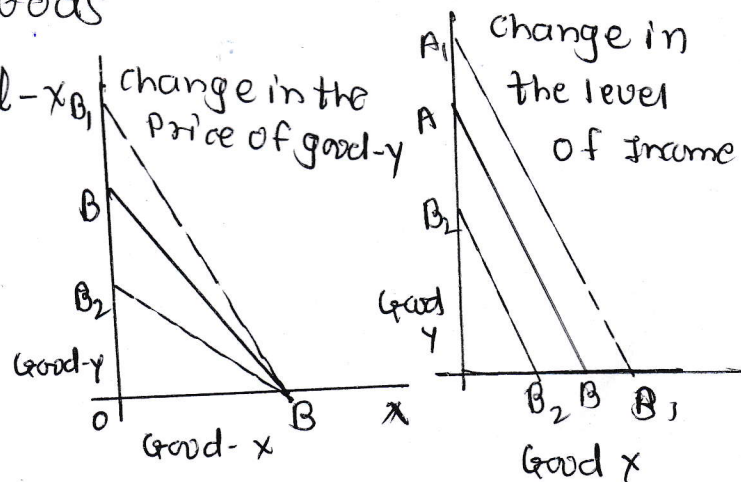 Goods
l-x
Change in the
Price of good-y
B₁
B
B₂
Good-y
O
B
X
Good-x
Change in
the level
of Income
A₁
A
B₂
Good
y
B₂ B B₁
Good x